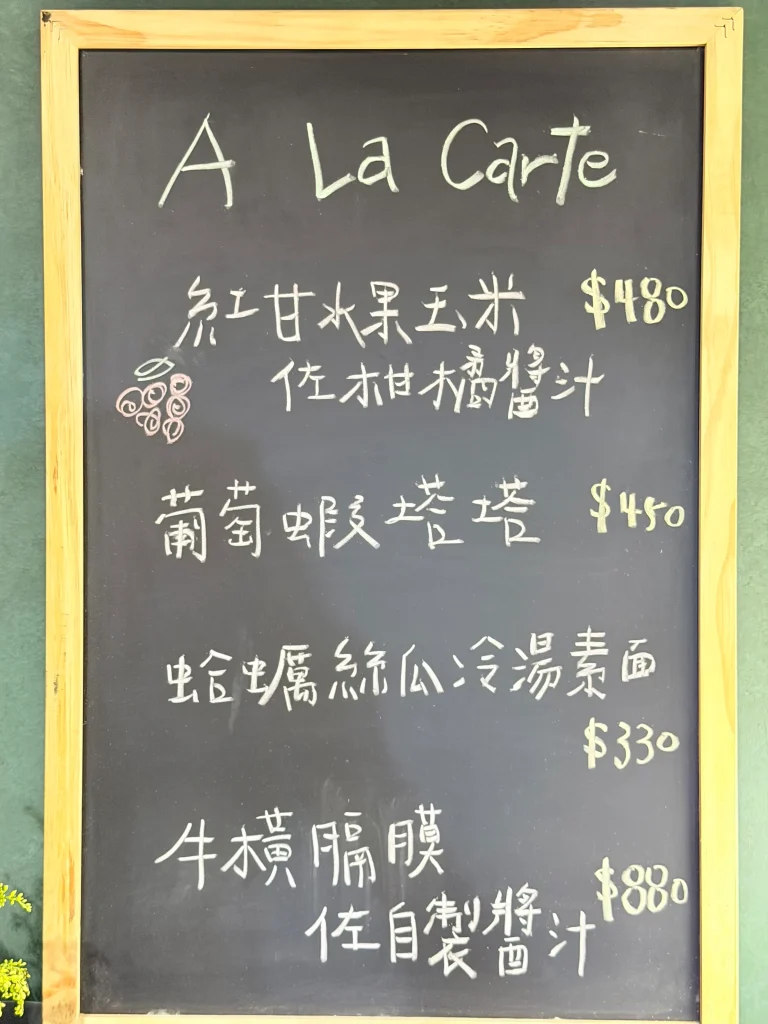 A La Carte
紅甘水果玉米 $480
佐柑橘醬汁
葡萄蝦塔塔 $450
蛤蠣絲瓜冷湯素面
$330
牛橫膈膜
佐自製醬汁 $880